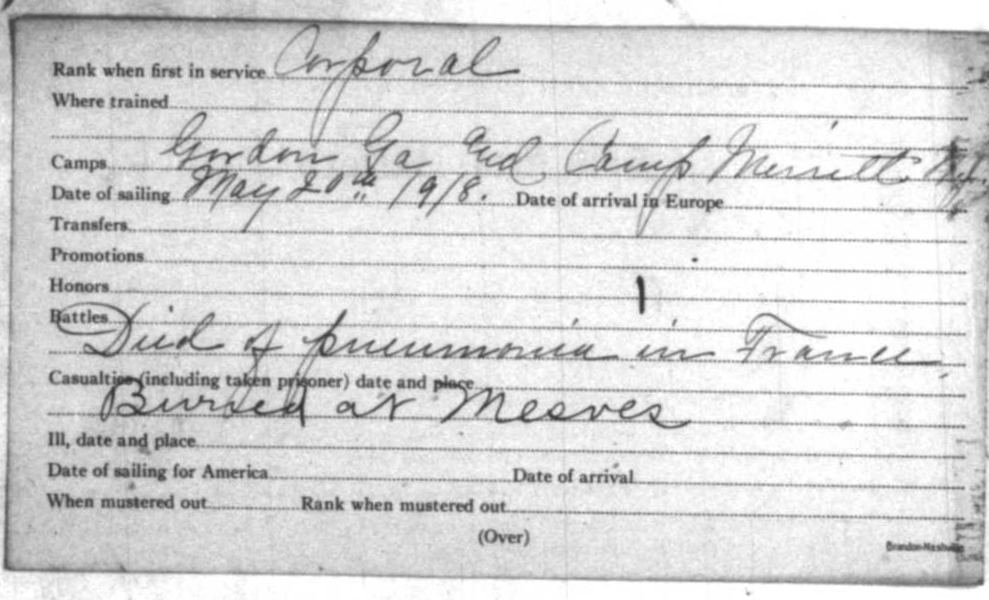 Rank when first in service Corporal
Where trained
Camps Gordon Ga and Camp Merritt
Date of sailing May 20th 1918. Date of arrival in Europe
Transfers
Promotions
Honors
Battles
Died of pneumonia in France
Casualties (including taken prisoner) date and place
Buried at Mesves
Ill, date and place
Date of sailing for America Date of arrival
When mustered out Rank when mustered out
(Over)
Brandon-Nashville